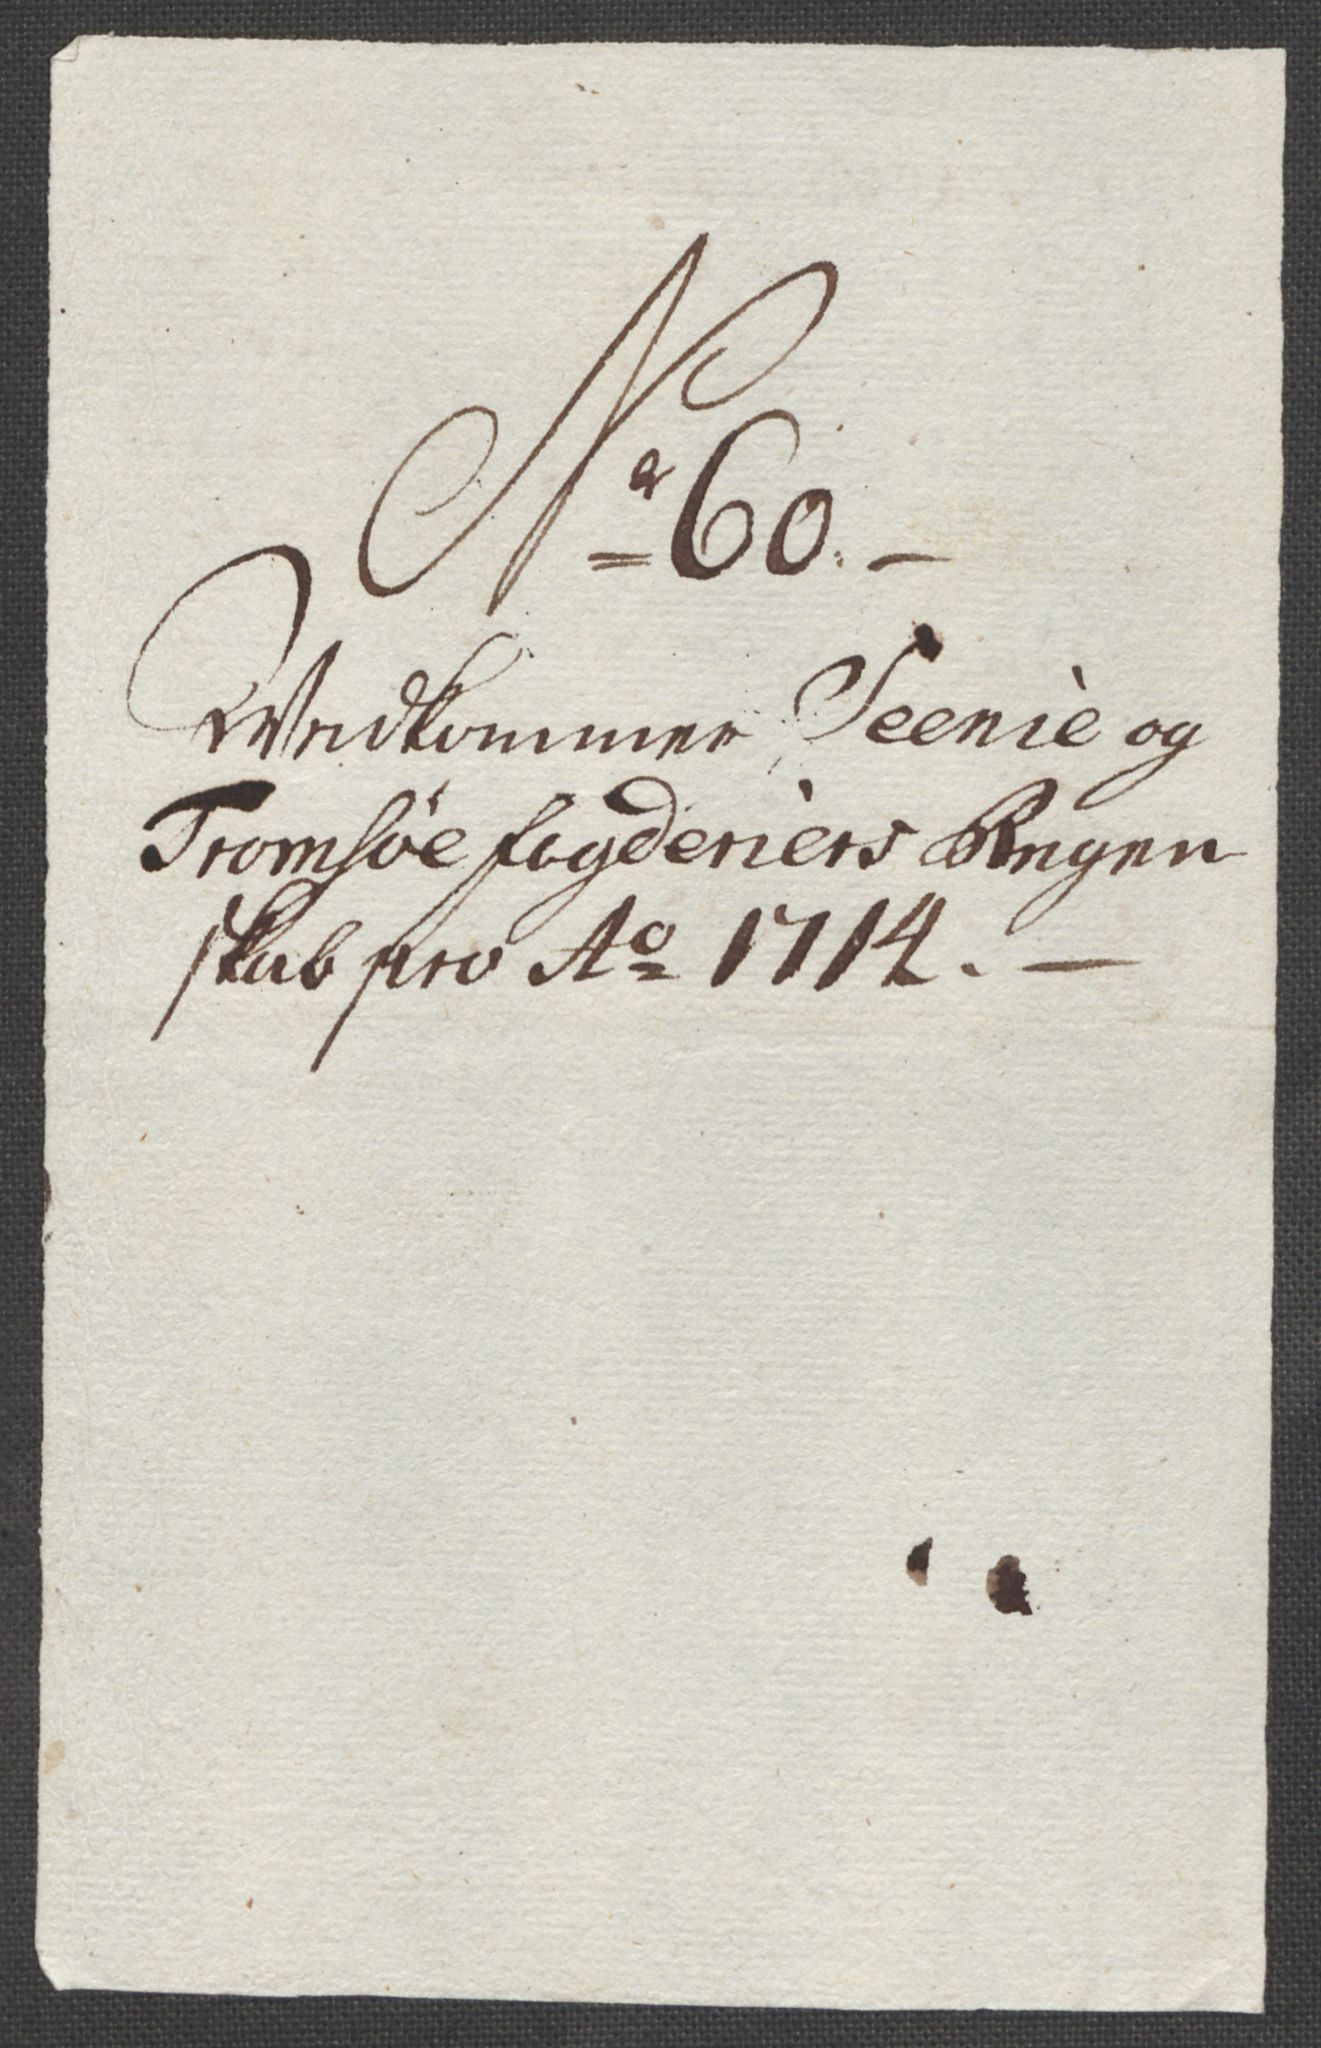 Nr 60. —
Vedkommer Seenie og
Tromsøe fogderiers Regen
skab pro Ao 1714. —